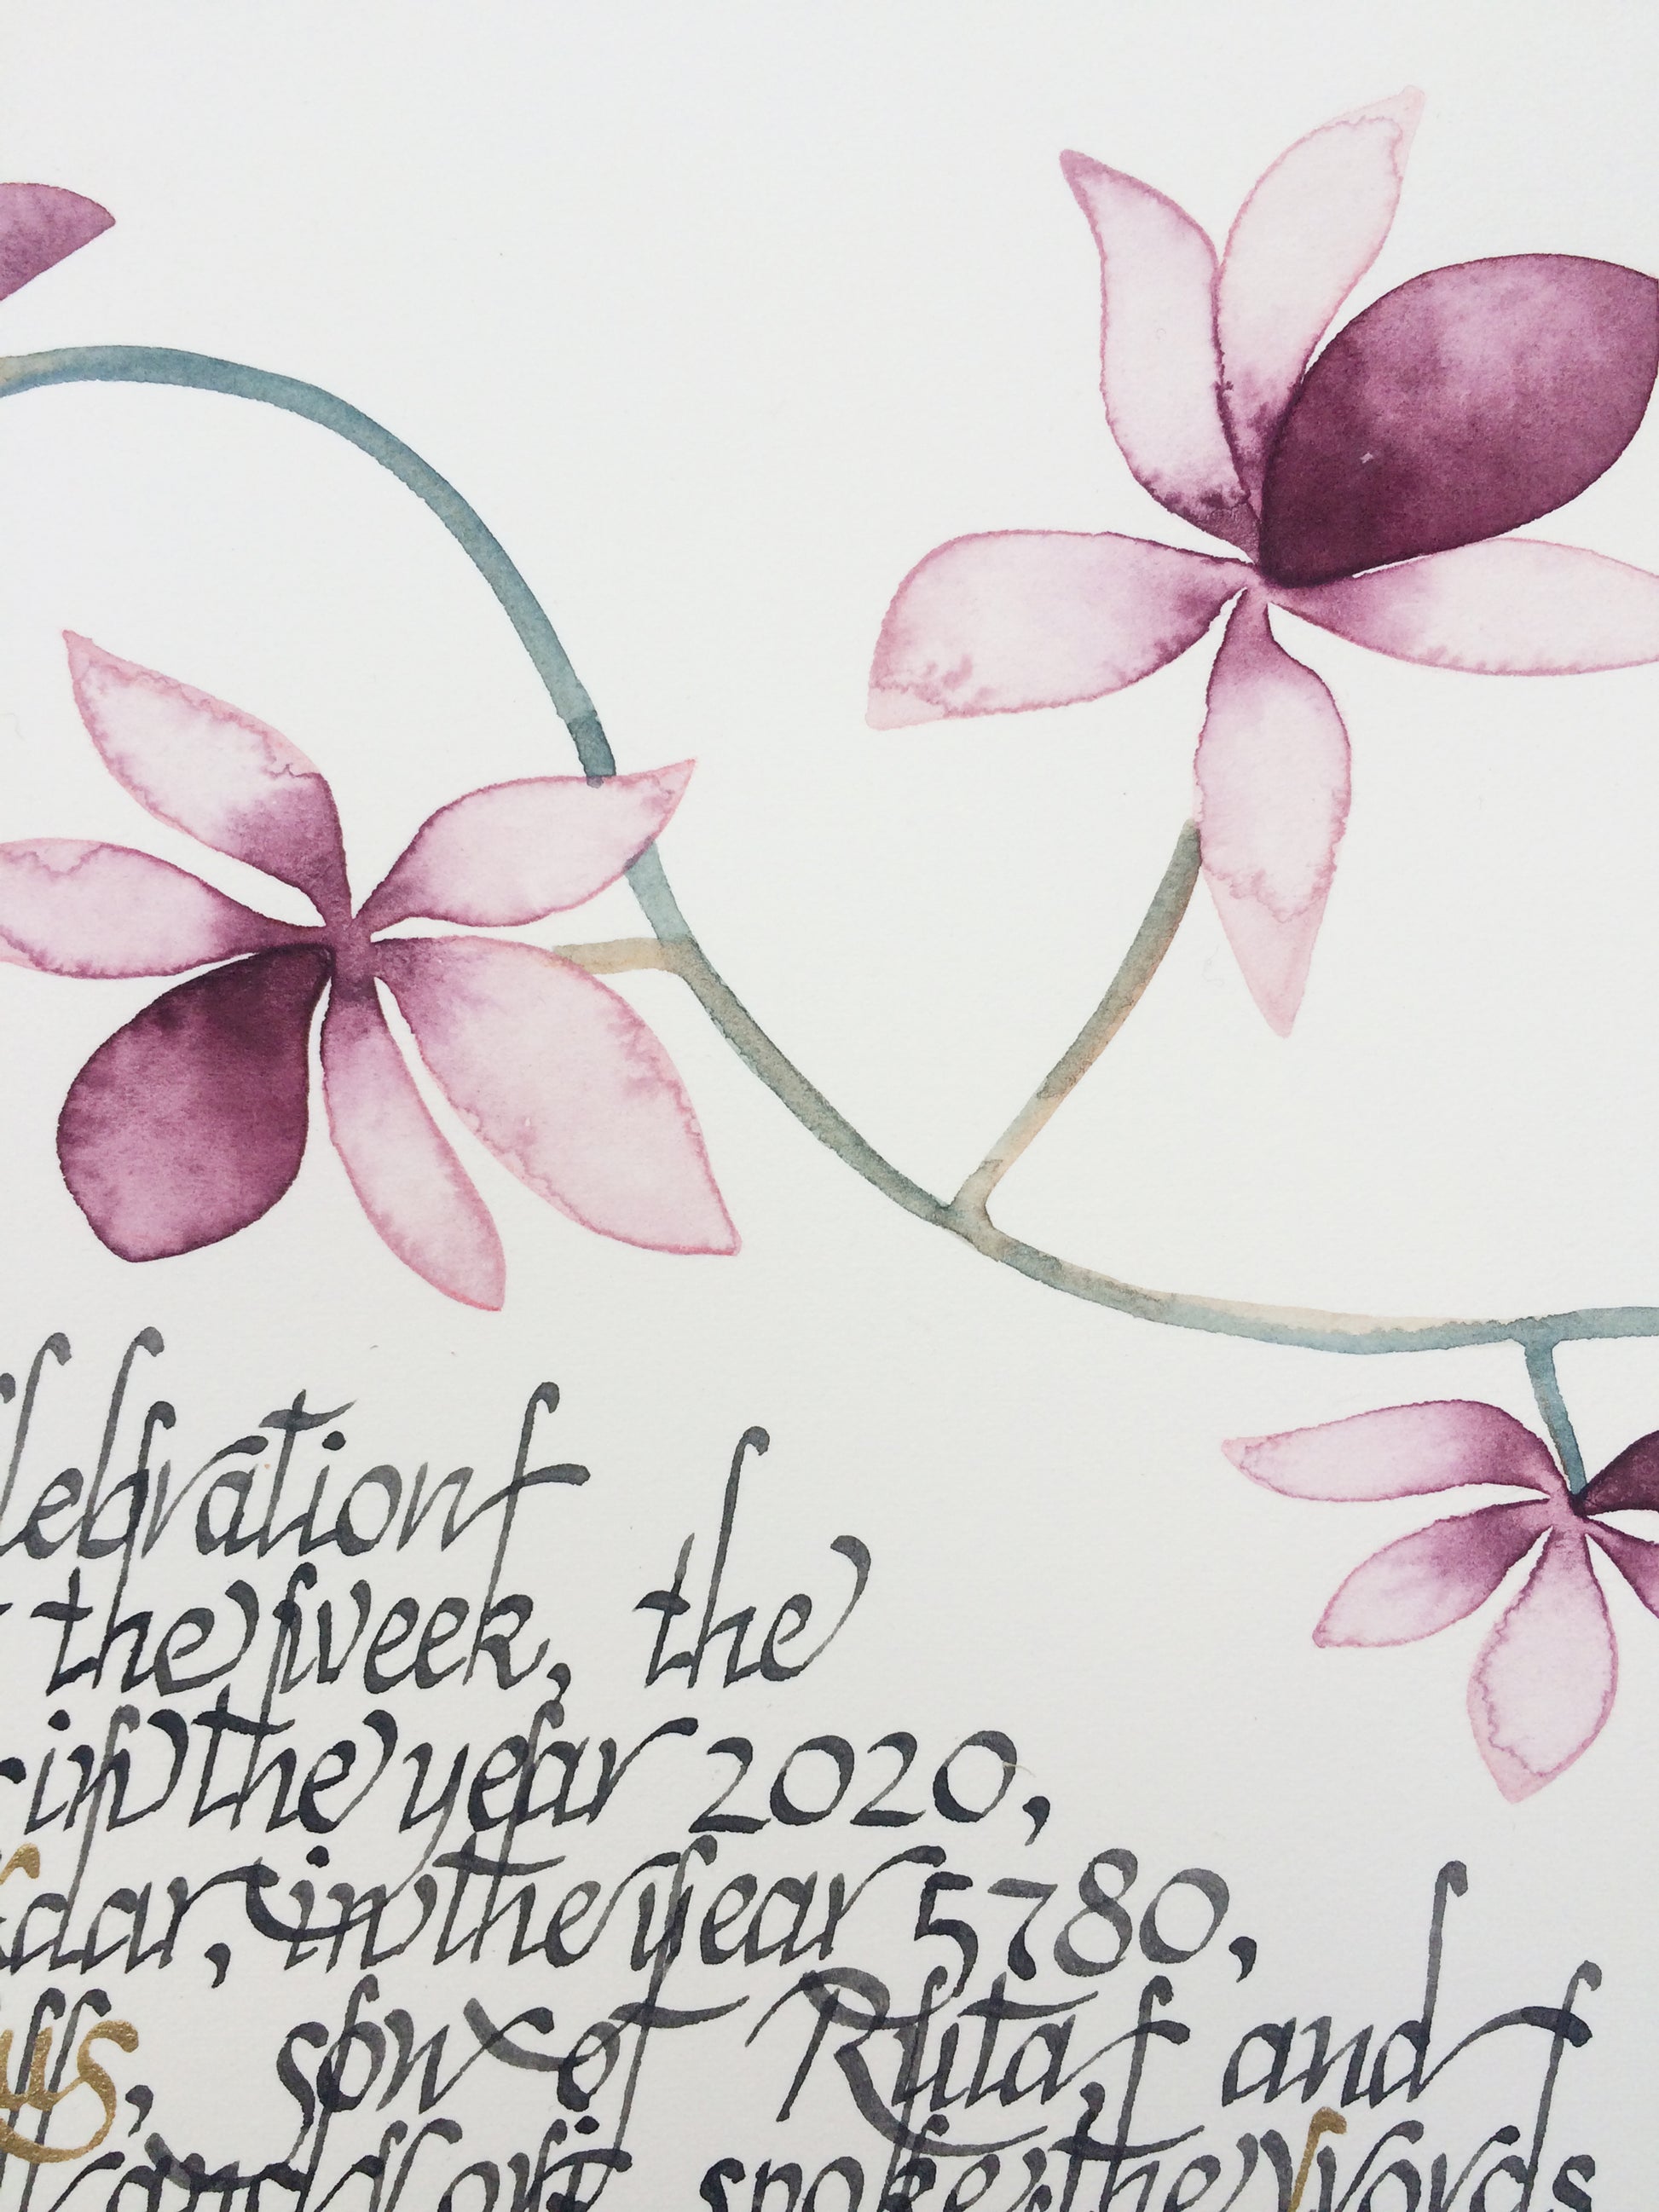 lebration
the week, the
in the year 2020,
dar, in the year 5780,
son of Ruta, and
and spoke the words